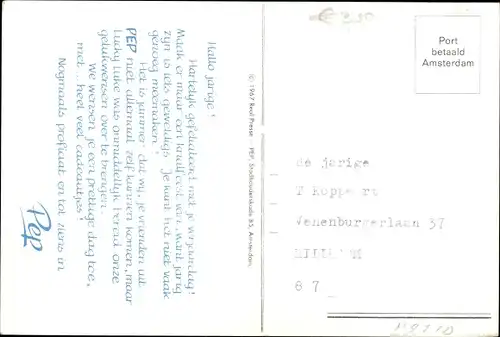 Hallo jarige!
Hartelijk gefeliciteerd met je verjaardag!
Maak er maar een knalfeest van. Want jarig
zijn is iets geweldigs. Je kunt het niet vaak
genoeg meemaken!
Het is jammer dat wij, je vrienden uit
PEP niet allemaal zelf kunnen komen, maar
Lucky Luke was onmiddellijk bereid onze
gelukwensen over te brengen.
We wensen je een prettige dag toe,
met... heel veel cadeautjes!
Nogmaals proficiat en tot ziens in
Pep
© 1967 Real Presse PEP, Stadhouderskade 85, Amsterdam.
Port
betaald
Amsterdam
de jarige
Koppert
37
6 7